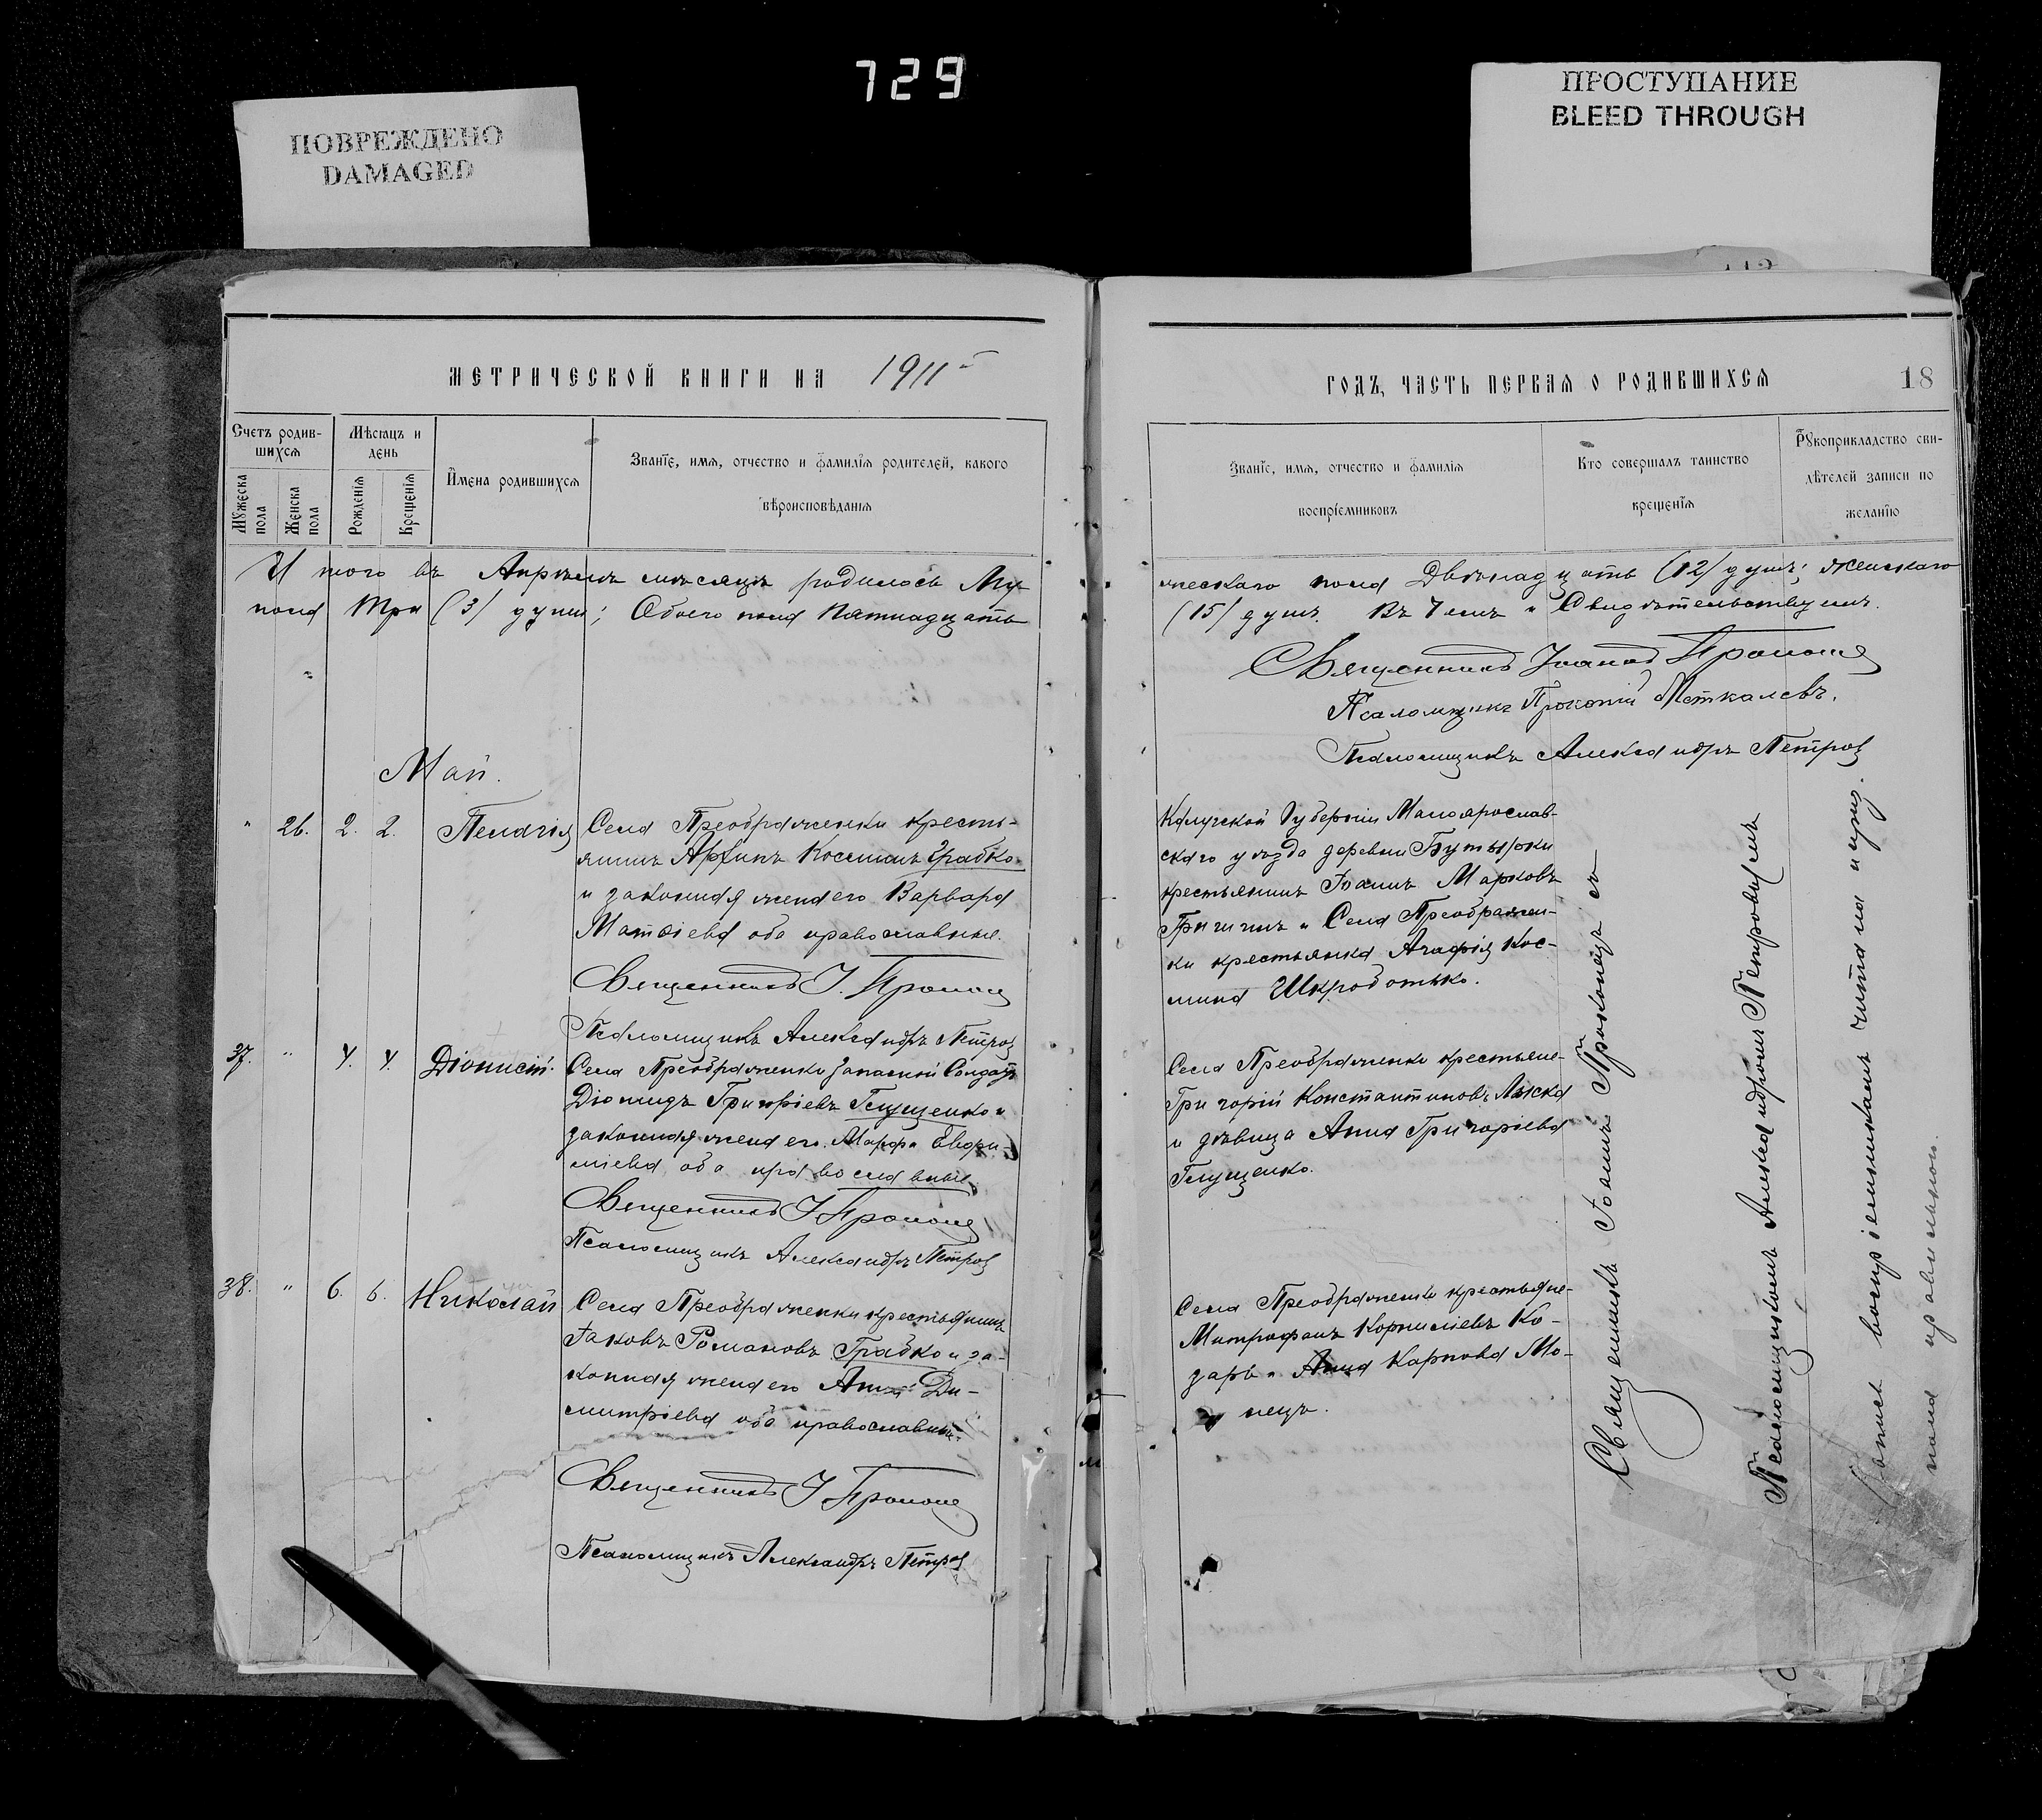 729
ПОВРЕЖДЕНО
DAMAGED
ПРОСТУПАНИЕ
BLEED THROUGH
МЕТРИЧЕСКОЙ КНИГИ НА 1911
Счетъ родив-
шихся
Мужеска пола
Женска пола
Мѣсяцъ и
день
Рожденія
Крещенія
Имена родившихся
Званіе, имя, отчество и фамилія родителей, какого
вѣроисповѣданія
И того въ Апрѣлѣ мѣсяцѣ родилось Му-
пола Три (3) души; Обоего пола Пятнадцать
Май.
" 26. 2. 2. Пелагія
Села Преображенки кресть-
янинъ Арѳинъ Косминъ Грабко
и законная жена его Варвара
Матѳіева оба православные.
Священникъ І.
Псаломщикъ Александръ Петровъ
37. " 4. 4. Діонисій.
Села Преображенки Запасной Солдатъ
Діомидъ Григоріевъ Глущенко и
законная жена его Марфа Евфи-
міева, оба православные
Священникъ І
Псаломщикъ Александръ Петровъ
38. " 6. 6. Николай
Села Преображенки крестьянинъ
Іаковъ Романовъ Грабко и за-
конная жена его Анна Ди-
митріева оба православные.
Священникъ І
Псаломщикъ Александръ Петровъ
ГОДЪ, ЧАСТЬ ПЕРВАЯ О РОДИВШИХСЯ
18
Званіе, имя, отчество и фамилія
воспріемниковъ
Кто совершалъ таинство
крещенія
Рукоприкладство сви-
дѣтелей записи по
желанію
жескаго пола Двѣнадцать (12) душъ; женскаго
(15) душъ. Въ чемъ и Свидѣтельствуемъ.
Священникъ Іоаннъ
Псаломщикъ Прокопій Меткалевъ.
Псаломщикъ Александръ Петровъ
Калужской Губерніи Малоярослав-
скаго уѣзда деревни Бутырки
крестьянинъ Іоаннъ Марковъ
и Села Преображен-
ки крестьянка Агафія Кос-
мина Шкработько.
Села Преображенки крестьяне-
Григорій Константиновъ Лыска
и дѣвица Анна Григоріева
Глущенко.
Села Преображенки крестьяне-
Митрофанъ Корниліевъ Ко-
зарь и Анна Карпова Мо-
нецъ.
Священникъ Іоаннъ съ
Псаломщикомъ Александромъ Петровымъ
Запись воспріемникамъ читана и приз-
нана правильною.